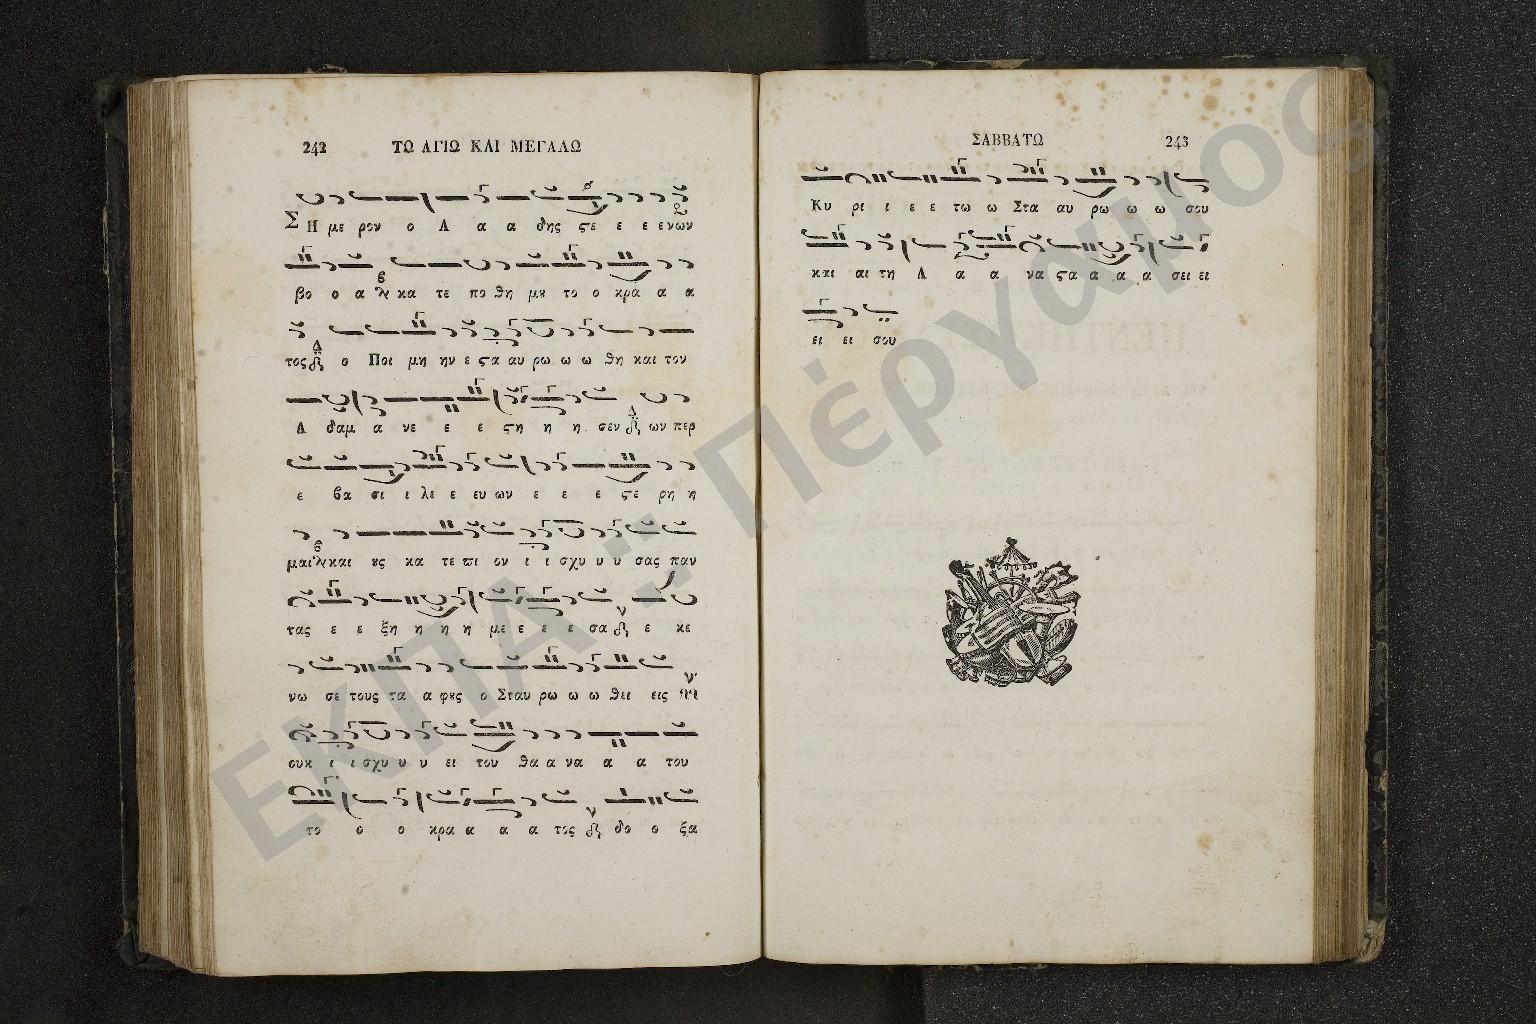 242 ΤΩ ΑΓΙΩ ΚΑΙ ΜΕΓΑΛΩ
Σ Η με ρον ο Α α α δης ϛε ε ε ενων
βο ο α κα τε πο θη μȣ το ο κρα α α
τος ο Ποι μη ην ε ϛα αυ ρω ω ω θη και τον
Α δαμ α νε ε ε ϛη η η σεν ων περ
ε βα σι ι λε ε ευ ων ε ε ε ϛε ρη η
μαι και ȣς κα τε πι ον ι ι σχυ υ υ σας παν
τας ε ε ξη η η η με ε ε ε σα ε κε
νω σε τους τα α φȣς ο Σταυ ρω ω ω θει εις
ουκ ι ι σχυ υ υ ει του θα α να α α του
το ο ο κρα α α α τος δο ο ξα
ΣΑΒΒΑΤΩ 243
Κυ ρι ι ε ε τω ω Στα αυ ρω ω ω σου
και αι τη Α α α να ϛα α α α σει ει
ει ει σου
ΕΚΠΑ :: Πέργαμος